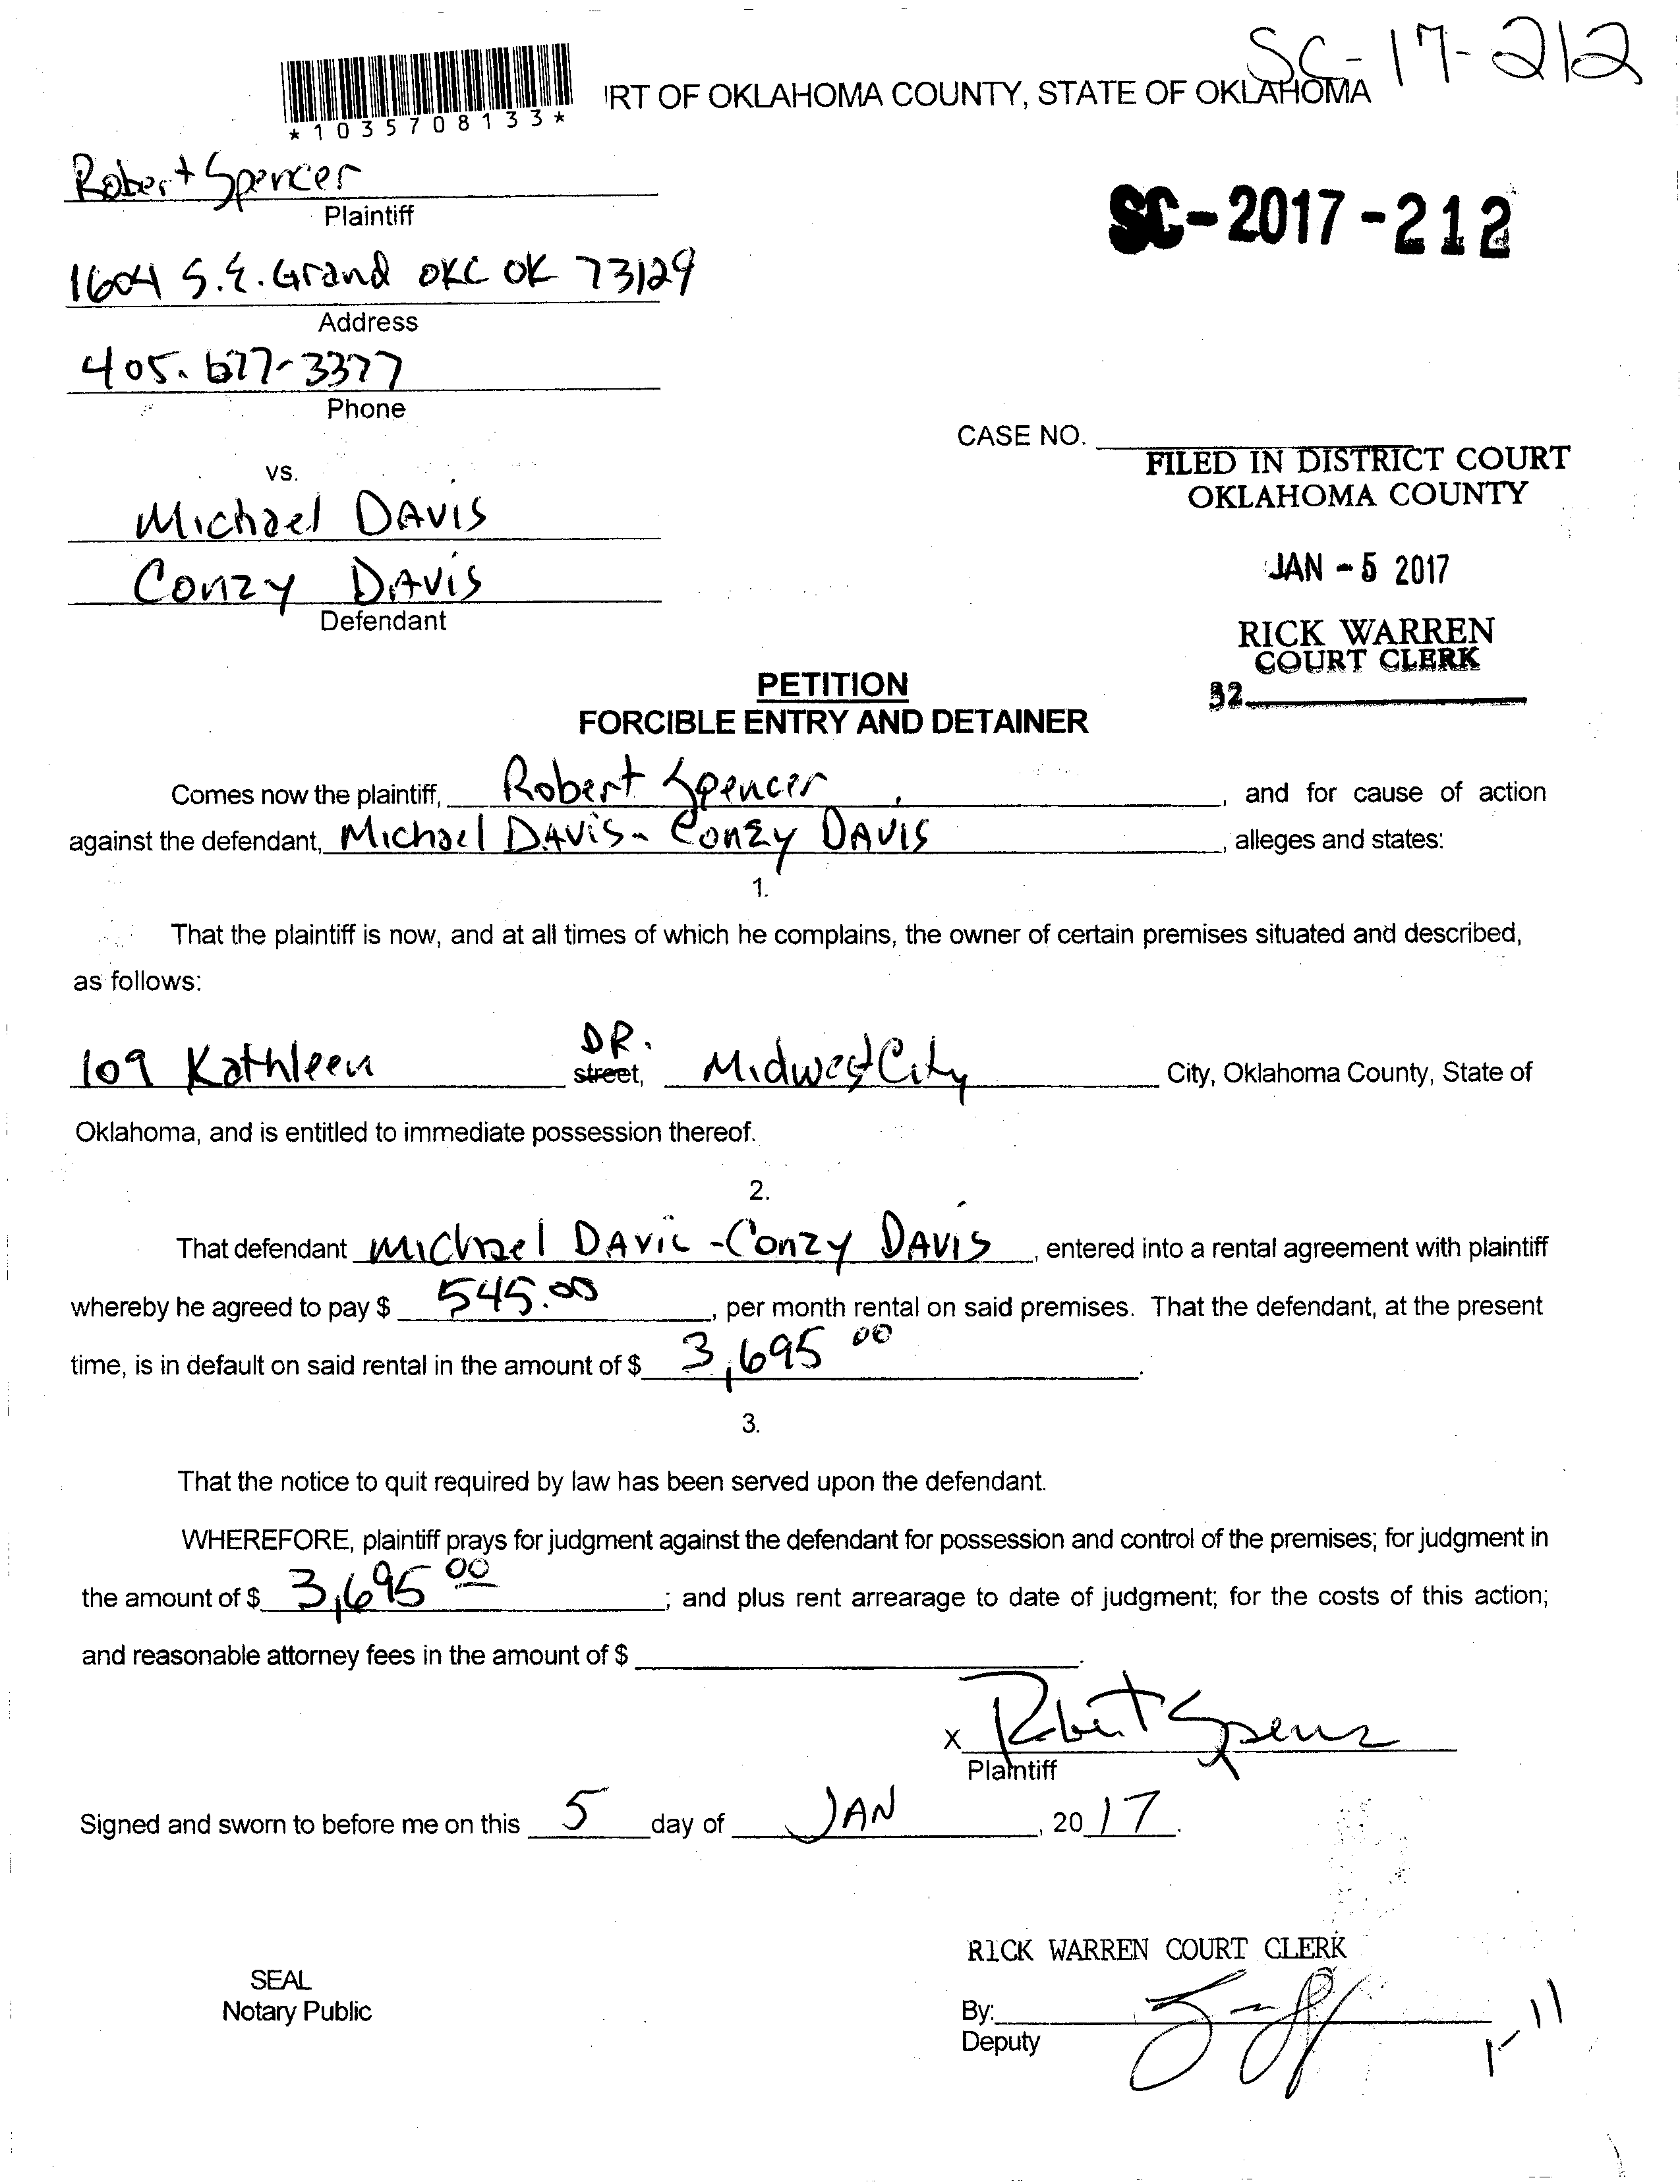 SC-17-212
*1035708133*
RT OF OKLAHOMA COUNTY, STATE OF OKLAHOMA
Robert Spencer
Plaintiff
SC-2017-212
1604 S.E. Grand OKC OK 73129
Address
405.677-3377
Phone
CASE NO.
FILED IN DISTRICT COURT
OKLAHOMA COUNTY
vs.
Michael DAVIS
JAN - 5 2017
Conzy DAVIS
Defendant
RICK WARREN
COURT CLERK
32
PETITION
FORCIBLE ENTRY AND DETAINER
Comes now the plaintiff, Robert Spencer, and for cause of action
against the defendant, Michael DAVIS - Conzy DAVIS, alleges and states:
1.
That the plaintiff is now, and at all times of which he complains, the owner of certain premises situated and described,
as follows:
109 Kathleen DR. street, Midwest City City, Oklahoma County, State of
Oklahoma, and is entitled to immediate possession thereof.
2.
That defendant Michael DAVIS - Conzy DAVIS, entered into a rental agreement with plaintiff
whereby he agreed to pay $ 545.00, per month rental on said premises. That the defendant, at the present
time, is in default on said rental in the amount of $ 3,695 00.
3.
That the notice to quit required by law has been served upon the defendant.
WHEREFORE, plaintiff prays for judgment against the defendant for possession and control of the premises; for judgment in
the amount of $ 3,695 00; and plus rent arrearage to date of judgment; for the costs of this action;
and reasonable attorney fees in the amount of $ .
x Robert Spencer
Plaintiff
Signed and sworn to before me on this 5 day of JAN, 20 17.
RICK WARREN COURT CLERK
SEAL
Notary Public
By:
Deputy
1-11